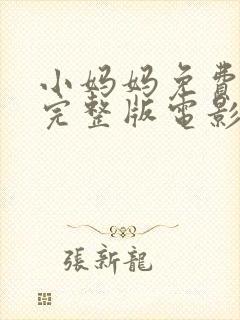 小妈妈免費
完整版電影
張新龍